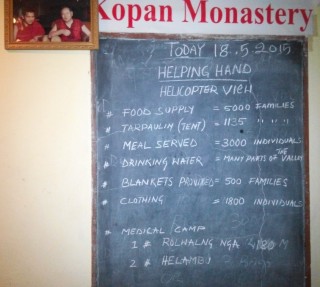 Kopan Monastery
TODAY 18.5.2015
HELPING HAND
HELICOPTER VICH
# FOOD SUPPLY = 5000 FAMILIES
# TARPAULIN (TENT) = 1135 " " " "
# MEAL SERVED = 3000 INDIVIDUALS
# DRINKING WATER = MANY PARTS OF THE VALLEY
# BLANKETS PROVIDED = 500 FAMILIES
# CLOTHING = 1800 INDIVIDUALS
# MEDICAL CAMP
1 # ROLHALNG NGA
2 # HELAMBU